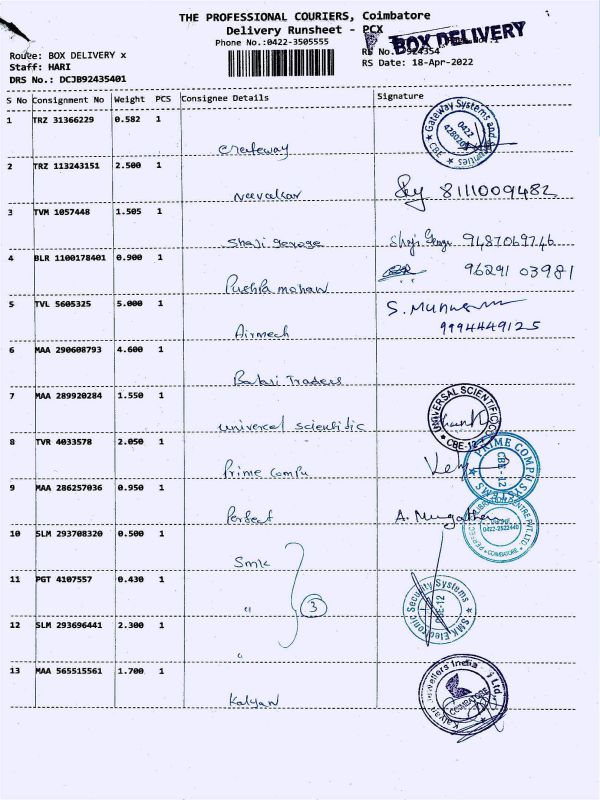 THE PROFESSIONAL COURIERS, Coimbatore
Delivery Runsheet - PCX
BOX DELIVERY
Phone No.:0422-3505555
Route: BOX DELIVERY x
Staff: HARI
RS Date: 18-Apr-2022
DRS No.: DCJB92435401
S No Consignment No Weight PCS Consignee Details Signature
1 TRZ 31366229 0.582 1
Gateway Systems and
0422
CBE
2 TRZ 113243151 2.500 1
8111009482
3 TVM 1057448 1.505 1
Shaji George 9487069746
4 BLR 1100178401 0.900 1
Pushpa mohan 96291 03981
5 TVL 5605325 5.000 1
Airmech 9994449125
6 MAA 290608793 4.600 1
Balaji Traders
7 MAA 289920284 1.550 1
universal scientific
UNIVERSAL SCIENTIFIC
CBE-12
8 TVR 4033578 2.050 1
Prime Compu
PRIME COMPU SYSTEMS
CBE-12
9 MAA 286257036 0.950 1
Perfect
COIMBATORE
10 SLM 293708320 0.500 1
Smk
11 PGT 4107557 0.430 1
" 3
SMK Electronic Security Systems
CBE-12
12 SLM 293696441 2.300 1
"
13 MAA 565515561 1.700 1
Kalyan
Kalyan Jewellers India Ltd
COIMBATORE